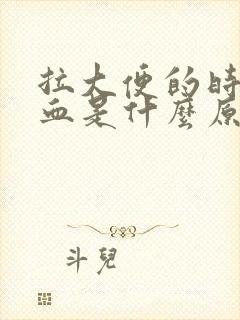 拉大便的時
血是什麼原
斗兒